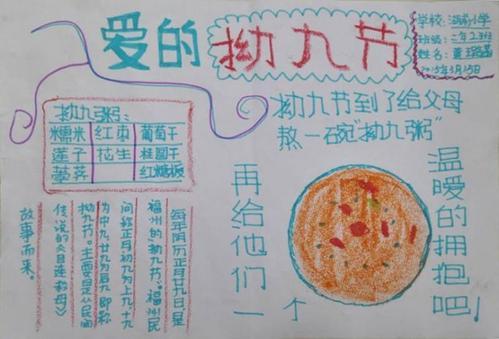 爱的拗九节
学校：小学
班级：二年2班
姓名：董
2015年3月
拗九粥：
糯米 红枣 葡萄干
莲子 花生 桂圆干
荸荠 红糖板
拗九节到了给父母
熬一碗“拗九粥”
再给他们一个
温暖的拥抱吧！
每年阴历正月廿九日是
福州的“拗九节”。福州民
间称正月初九为上九，十九
为中九，廿九为后九即称
拗九节。主要是从民间
传说的《目连救母》
故事而来。